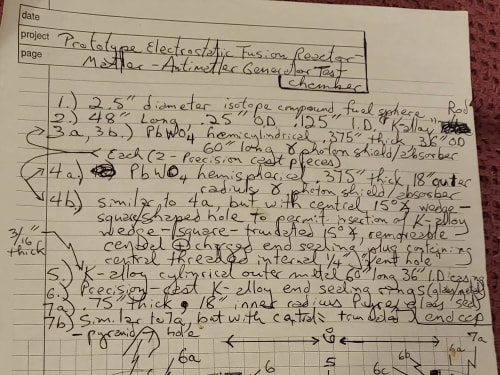 date
project Prototype Electrostatic Fusion Reactor
page Matter-Antimatter Generator Test
chamber
1.) 2.5" diameter isotope compound fuel sphere
2.) 48" long, .25" OD, .125" I.D. K-alloy Rod
3a, 3b.) PbWO4 hemicylindrical .375" thick, 36" OD
60" long γ photon shield/absorber
Each (2-precision cast pieces)
4a.) PbWO4 hemispherical .375" thick, 18" outer
radius γ photon shield/absorber
4b) similar to 4a, but with central 15° wedge-
square shaped hole to permit insertion of K-alloy
wedge-square-truncated 15°, removeable
central + charged end sealing plug containing
central threaded internal 1/4" vent hole
3/16"
thick
5.) K-alloy cylindrical outer metal 60" long 36" I.D. casing
6.) Precision-cast K-alloy end sealing rings (glass/metal
7a.) .75" thick, 18" inner radius Pyrex glass seal)
7b) Similar to 7a, but with central truncated end cap
-pyramid hole
6a
6
6c
6b
6a
7a
N